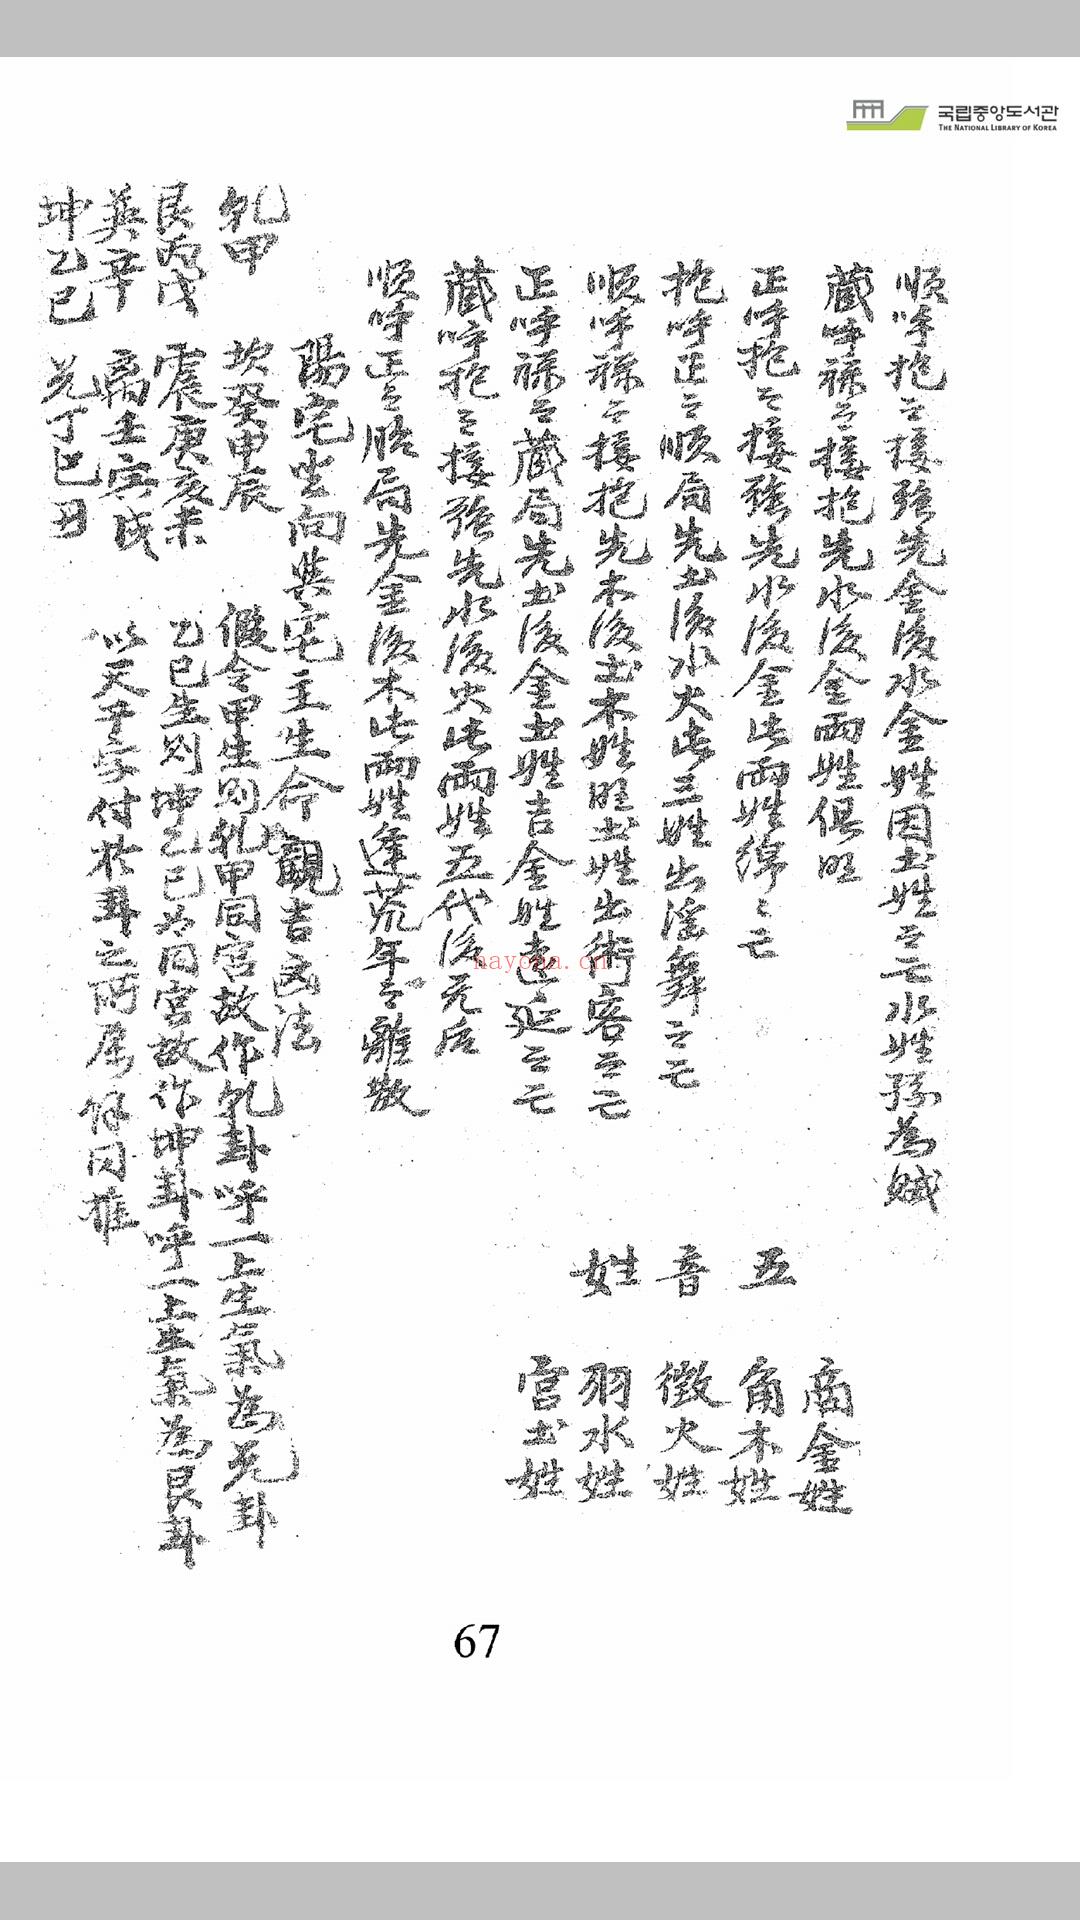 국립중앙도서관
THE NATIONAL LIBRARY OF KOREA
順呼抱〻接強先金後水金姓因土姓〻亡水姓孫為賊
藏呼祿〻接抱先水後金兩姓俱旺
正呼抱〻接強先水後金此兩姓綿〻亡
抱呼正〻順局先土後水火此三姓出淫舞〻亡
順呼祿〻接抱先木後土木姓旺土姓出術客〻亡
正呼祿〻藏局先土後金土姓吉金姓遠延〻亡
藏呼抱〻接強先水後火此兩姓五代後无后
順呼正〻局先金後木此兩姓逢荒年離散
五音姓
商金姓
角木姓
徵火姓
羽水姓
宮土姓
陽宅坐向與宅主生命觀吉凶法
乹甲 坎癸申辰 假令甲生則乹甲同宮故作乹卦呼一上生氣為兌卦
艮丙戊 震庚亥未 乙巳生則坤乙巳同宮故作坤卦呼一上生氣為艮卦
巽辛 离壬寅戌 以天干字付於卦之所屬餘同推
坤乙巳 兌丁巳丑
nayona.cn
67